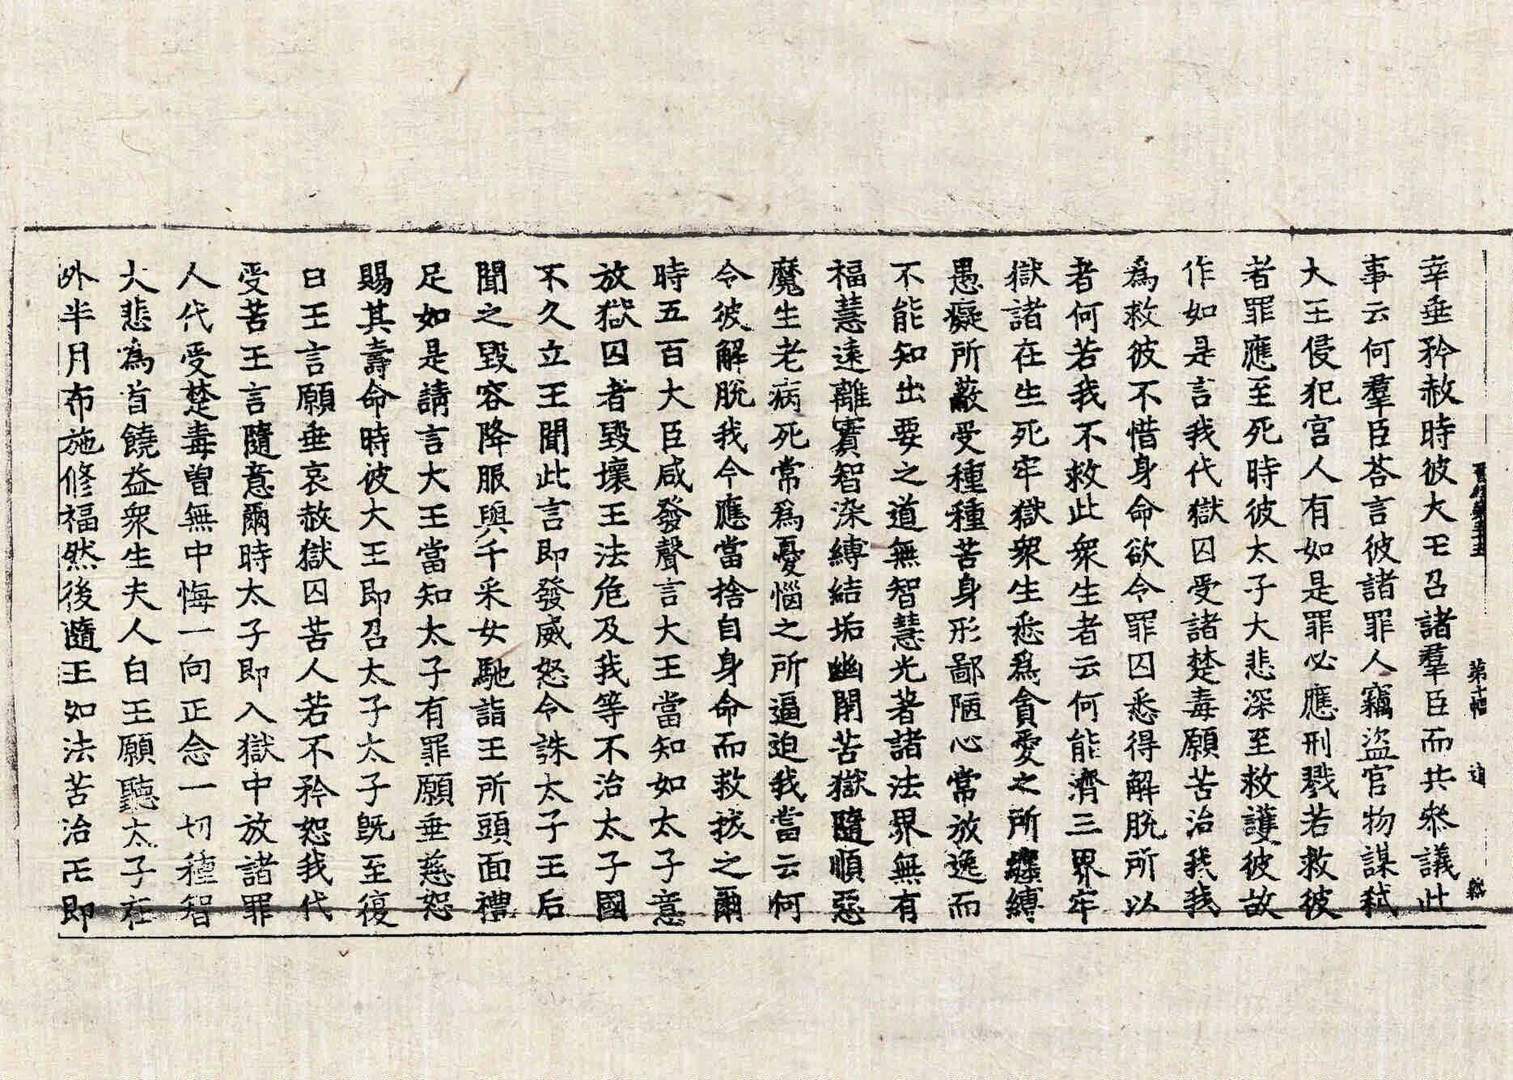 幸垂矜赦時彼大王召諸羣臣而共㕘議此
事云何羣臣荅言彼諸罪人竊盜官物謀弒
大王侵犯宮人有如是罪必應刑戮若救彼
者罪應至死時彼太子大悲深至救護彼故
作如是言我代獄囚受諸楚毒願苦治我我
爲救彼不惜身命欲令罪囚悉得解脫所以
者何若我不救此衆生者云何能濟三界牢
獄諸在生死牢獄衆生悉爲貪愛之所纏縛
愚癡所蔽受種種苦身形鄙陋心常放逸而
不能知出要之道無智慧光著諸法界無有
福慧遠離實智深縛結垢幽閉苦獄隨順惡
魔生老病死常爲憂惱之所逼迫我當云何
令彼解脫我今應當捨自身命而救拔之爾
時五百大臣咸發聲言大王當知如太子意
放獄囚者毀壞王法危及我等不治太子國
不久立王聞此言即發威怒令誅太子王后
聞之毀容降服與千采女馳詣王所頭面禮
足如是請言大王當知太子有罪願垂慈恕
賜其壽命時彼大王即召太子太子旣至復
白王言願垂哀赦獄囚苦人若不矜恕我代
受苦王言隨意爾時太子即入獄中放諸罪
人代受楚毒曽無中悔一向正念一切種智
大悲爲首饒益衆生夫人白王願聽太子在
外半月布施修福然後隨王如法苦治王即